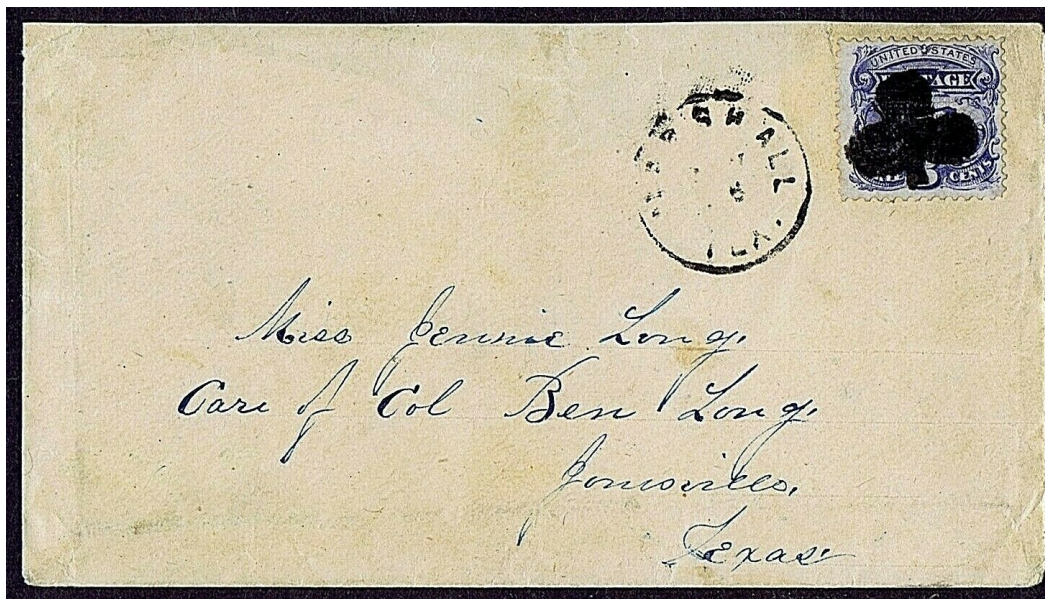 UNITED STATES
POSTAGE
3 CENTS
MARSHALL
TEX.
Miss Jennie Long.
Care of Col Ben Long.
Jonesville,
Texas.